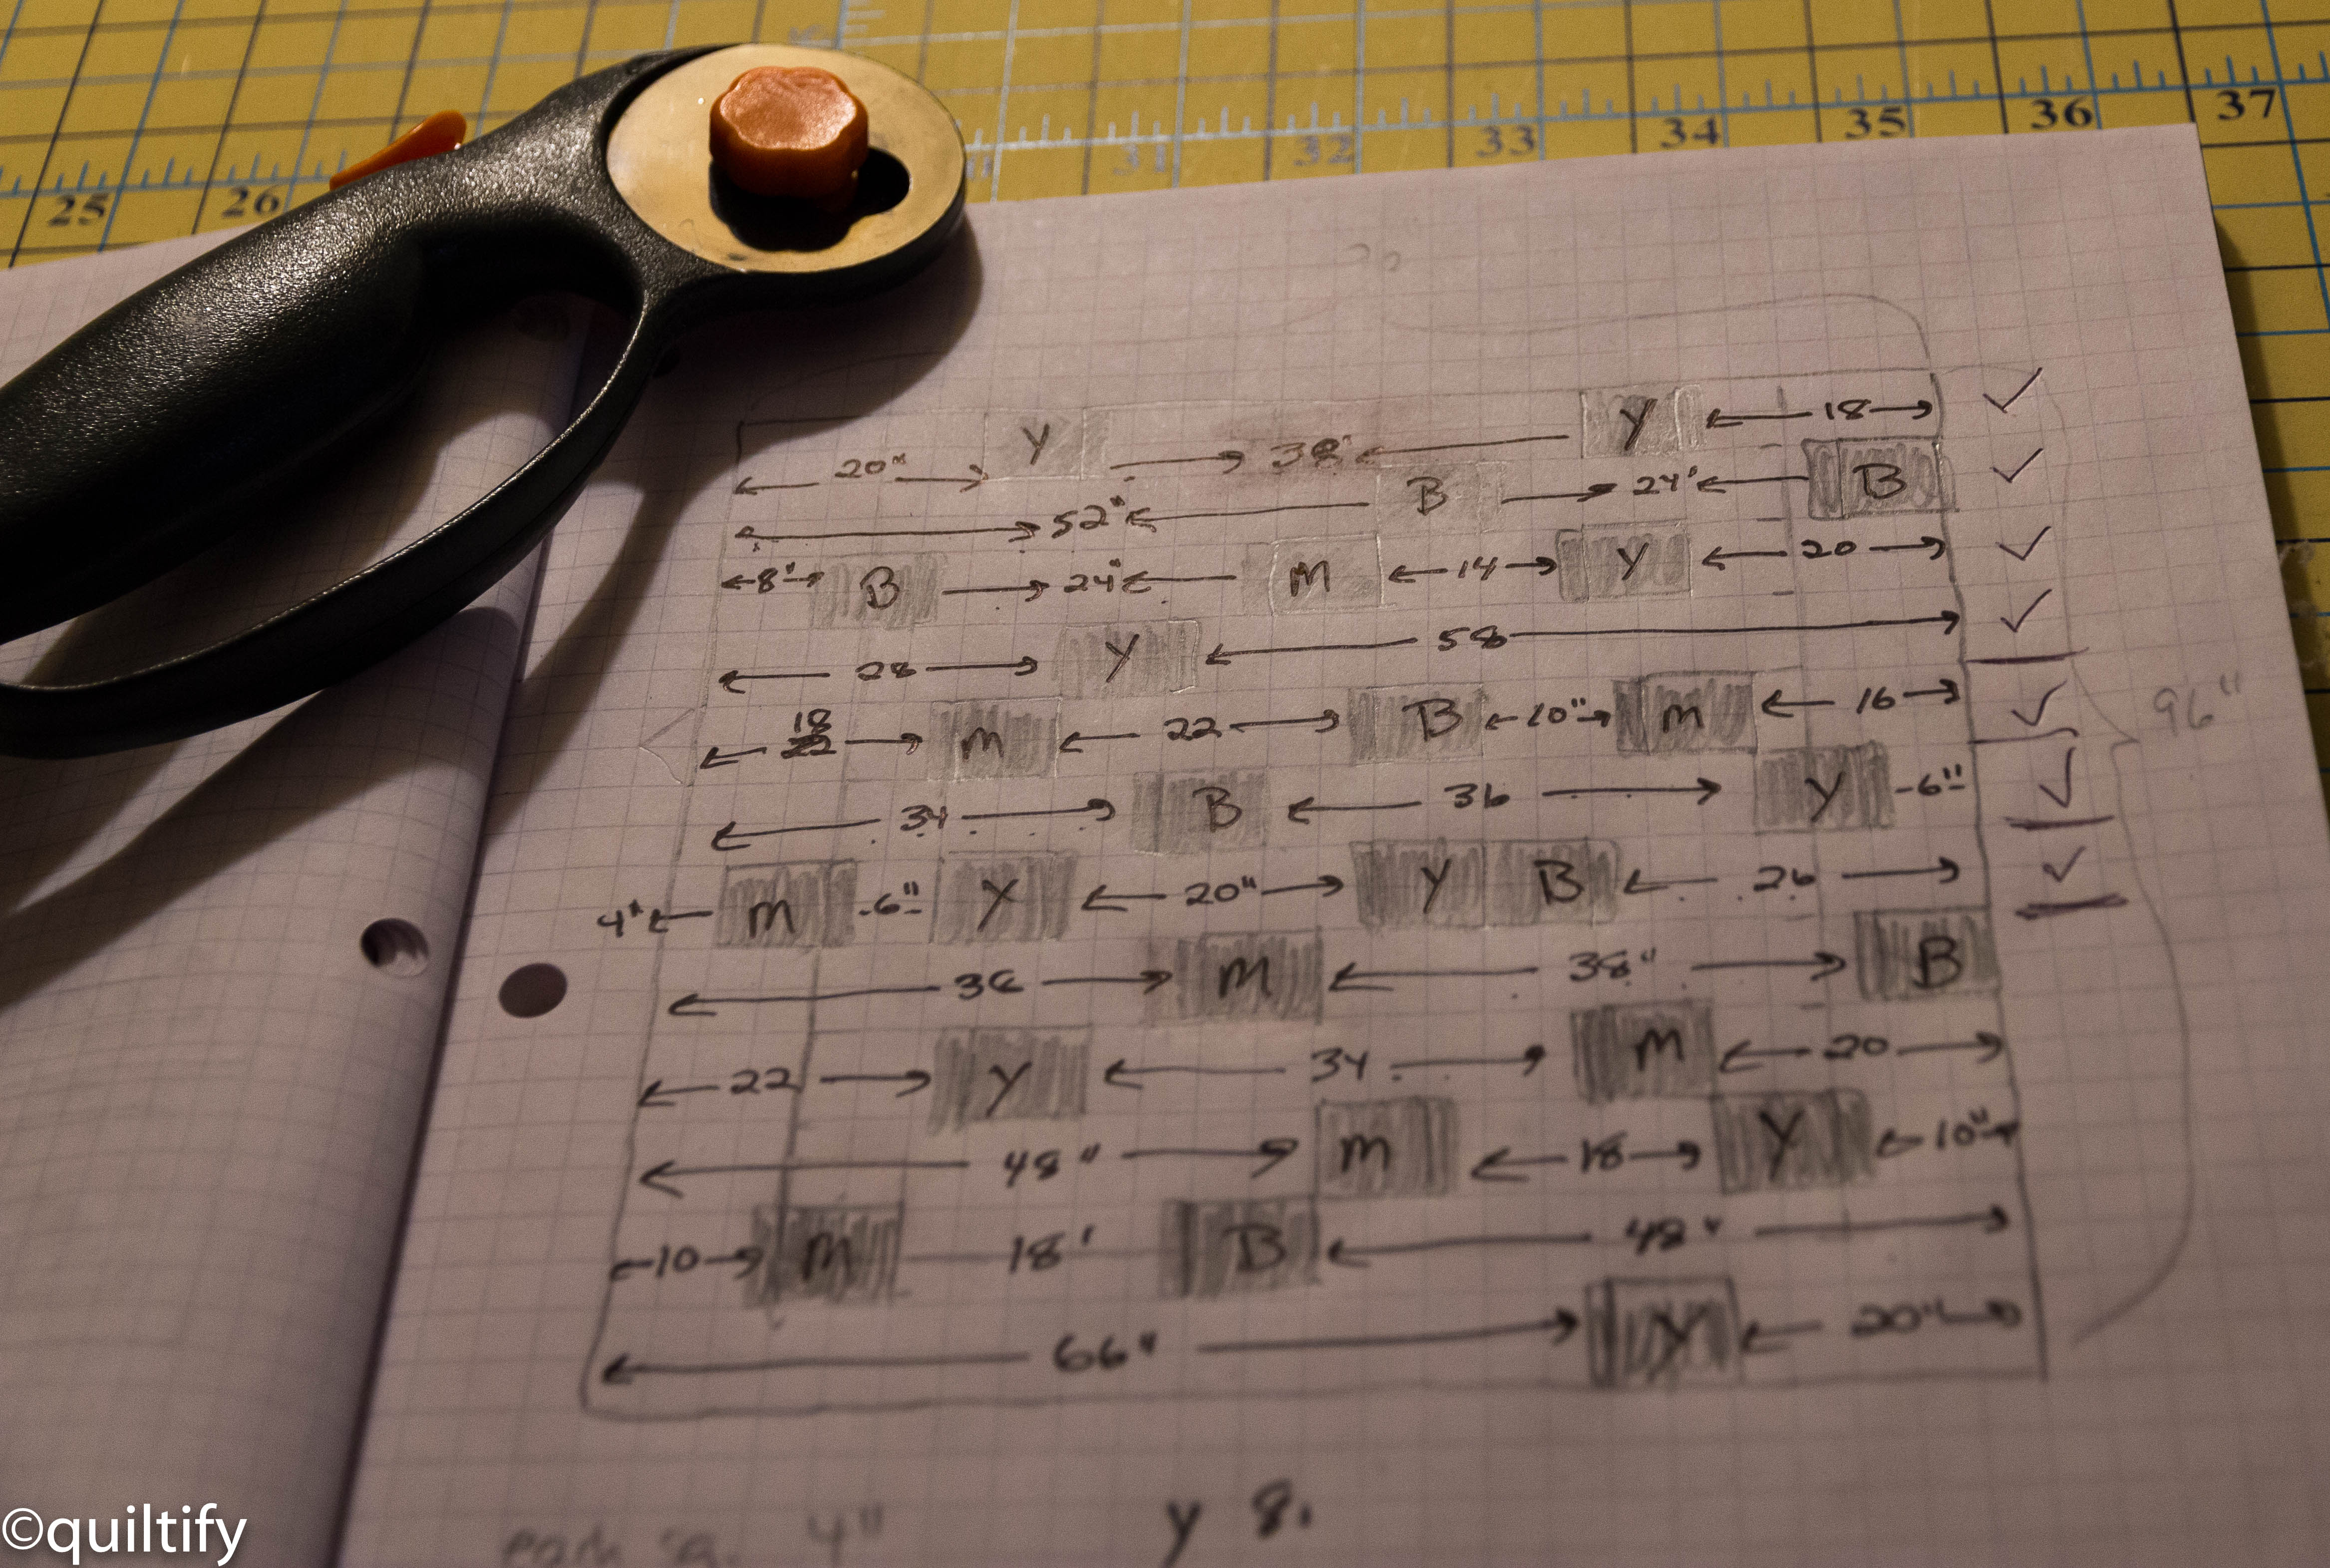 25 26 31 32 33 34 35 36 37
20" Y 38" Y 18
52" B 24" B
8" B 24" M 14 Y 20
28 Y 58
18
22 M 22 B 10" M 16
96"
34 B 36 Y 6"
4" M 6" Y 20" Y B 26
36 M 38" B
22 Y 34 M 20
48" M 18 Y 10"
10 M 18' B 48"
66" Y 20"
each sq. 4" Y 8.
©quiltify